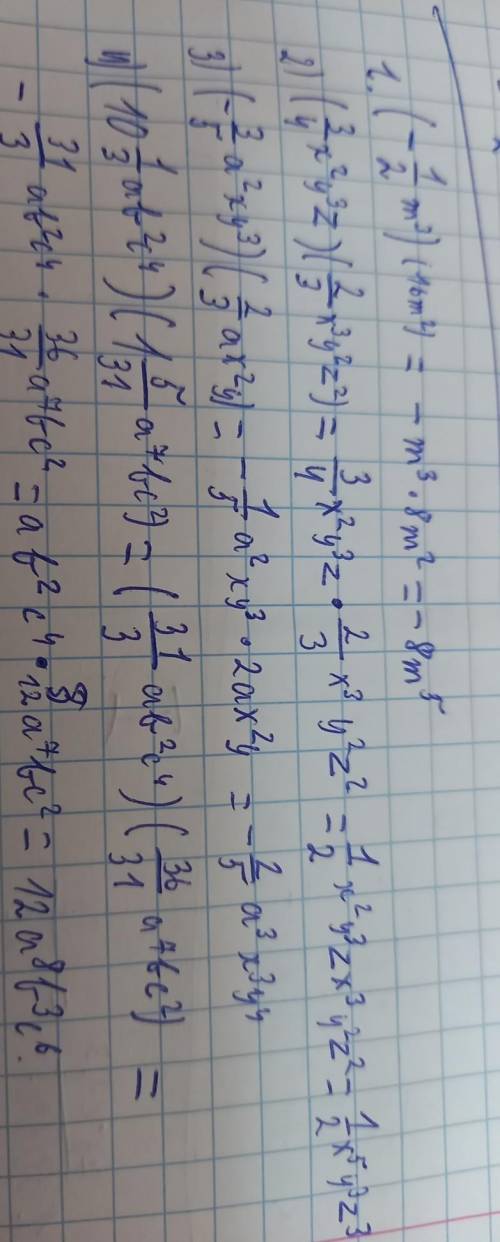 1. (-1/2 m³)(16m²) = -m³·8m² = -8m⁵
2) (3/4 x²y³z)(2/3 x³y²z²) = 3/4 x²y³z · 2/3 x³y²z² = 1/2 x²y³zx³y²z² = 1/2 x⁵y⁵z³
3) (-3/5 a²xy³)(2/3 ax²y) = -1/5 a²xy³·2ax²y = -2/5 a³x³y⁴
4) (10 1/3 ab²c⁴)(1 5/31 a⁷bc²) = (31/3 ab²c⁴)(36/31 a⁷bc²) =
- 31/3 ab²c⁴ · 36/31 a⁷bc² = ab²c⁴·12a⁷bc² = 12a⁸b³c⁶.